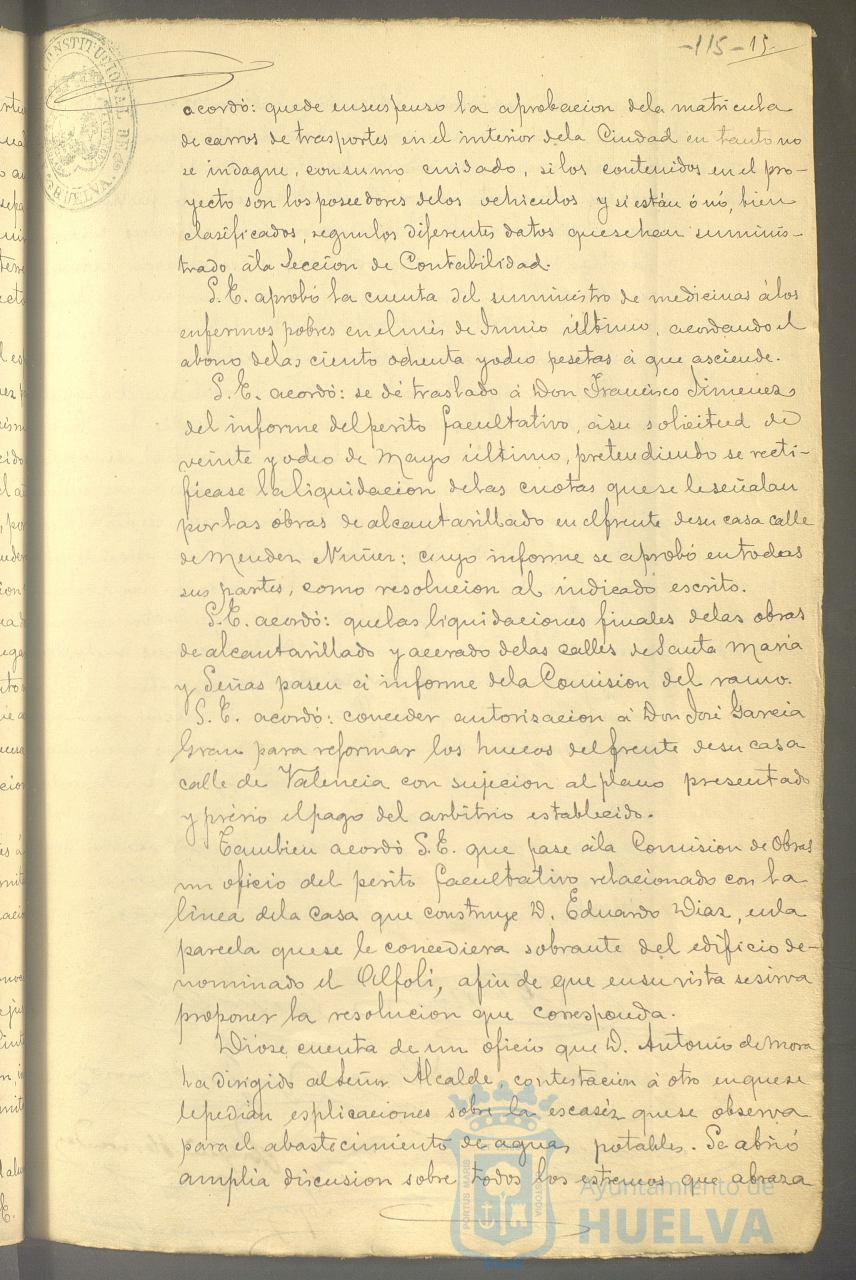 -115- 15
CONSTITUCIONAL DE
HUELVA
acordó: quede ensuspenso la aprobacion dela matricula
de carros de trasportes en el interior dela Ciudad en tanto no
se indague, con sumo cuidado, si los contenidos en el pro-
yecto son los poseedores delos vehiculos y si están ó nó, bien
clasificados, segun los diferentes datos que se han suminis-
trado ála Seccion de Contabilidad.
S.E. aprobó la cuenta del suministro de medicinas álos
enfermos pobres en el mes de Junio último, acordando el
abono delas ciento ochenta y ocho pesetas á que asciende.
S.E. acordó: se dé traslado á Don Francisco Jimenez
del informe del perito facultativo, ásu solicitud de
veinte y ocho de Mayo último, pretendiendo se recti-
ficase la liquidacion delas cuotas que se le señalan
por las obras de alcantarillado en el frente desu casa calle
de Mendez Nuñez: cuyo informe se aprobó en todas
sus partes, como resolucion al indicado escrito.
S.E. acordó: que las liquidaciones finales delas obras
de alcantarillado y acerado delas calles de Santa Maria
y Señas pasen á informe dela Comision del ramo.
S.E. acordó: conceder autorisacion á Don José Garcia
Gran para reformar los huecos del frente desu casa
calle de Valencia con sujecion al plano presentado
y prévio el pago del arbitrio establecido.
Tambien acordó S.E. que pase ála Comision de Obras
un oficio del perito facultativo relacionado con la
línea dela casa que construye D. Eduardo Diaz, en la
parcela que se le concediera sobrante del edificio de-
nominado el Alfolí, afin de que en su vista se sirva
proponer la resolucion que corresponda.
Dióse cuenta de un oficio que D. Antonio de Mora
ha dirigido al Señor Alcalde, contestacion á otro en que se
le pedian esplicaciones sobre la escaséz que se observa
para el abastecimiento de aguas potables. Se abrió
amplia discusion sobre todos los estremos que abraza
PORTUS MARIS
CUSTODIA
Ayuntamiento de
HUELVA